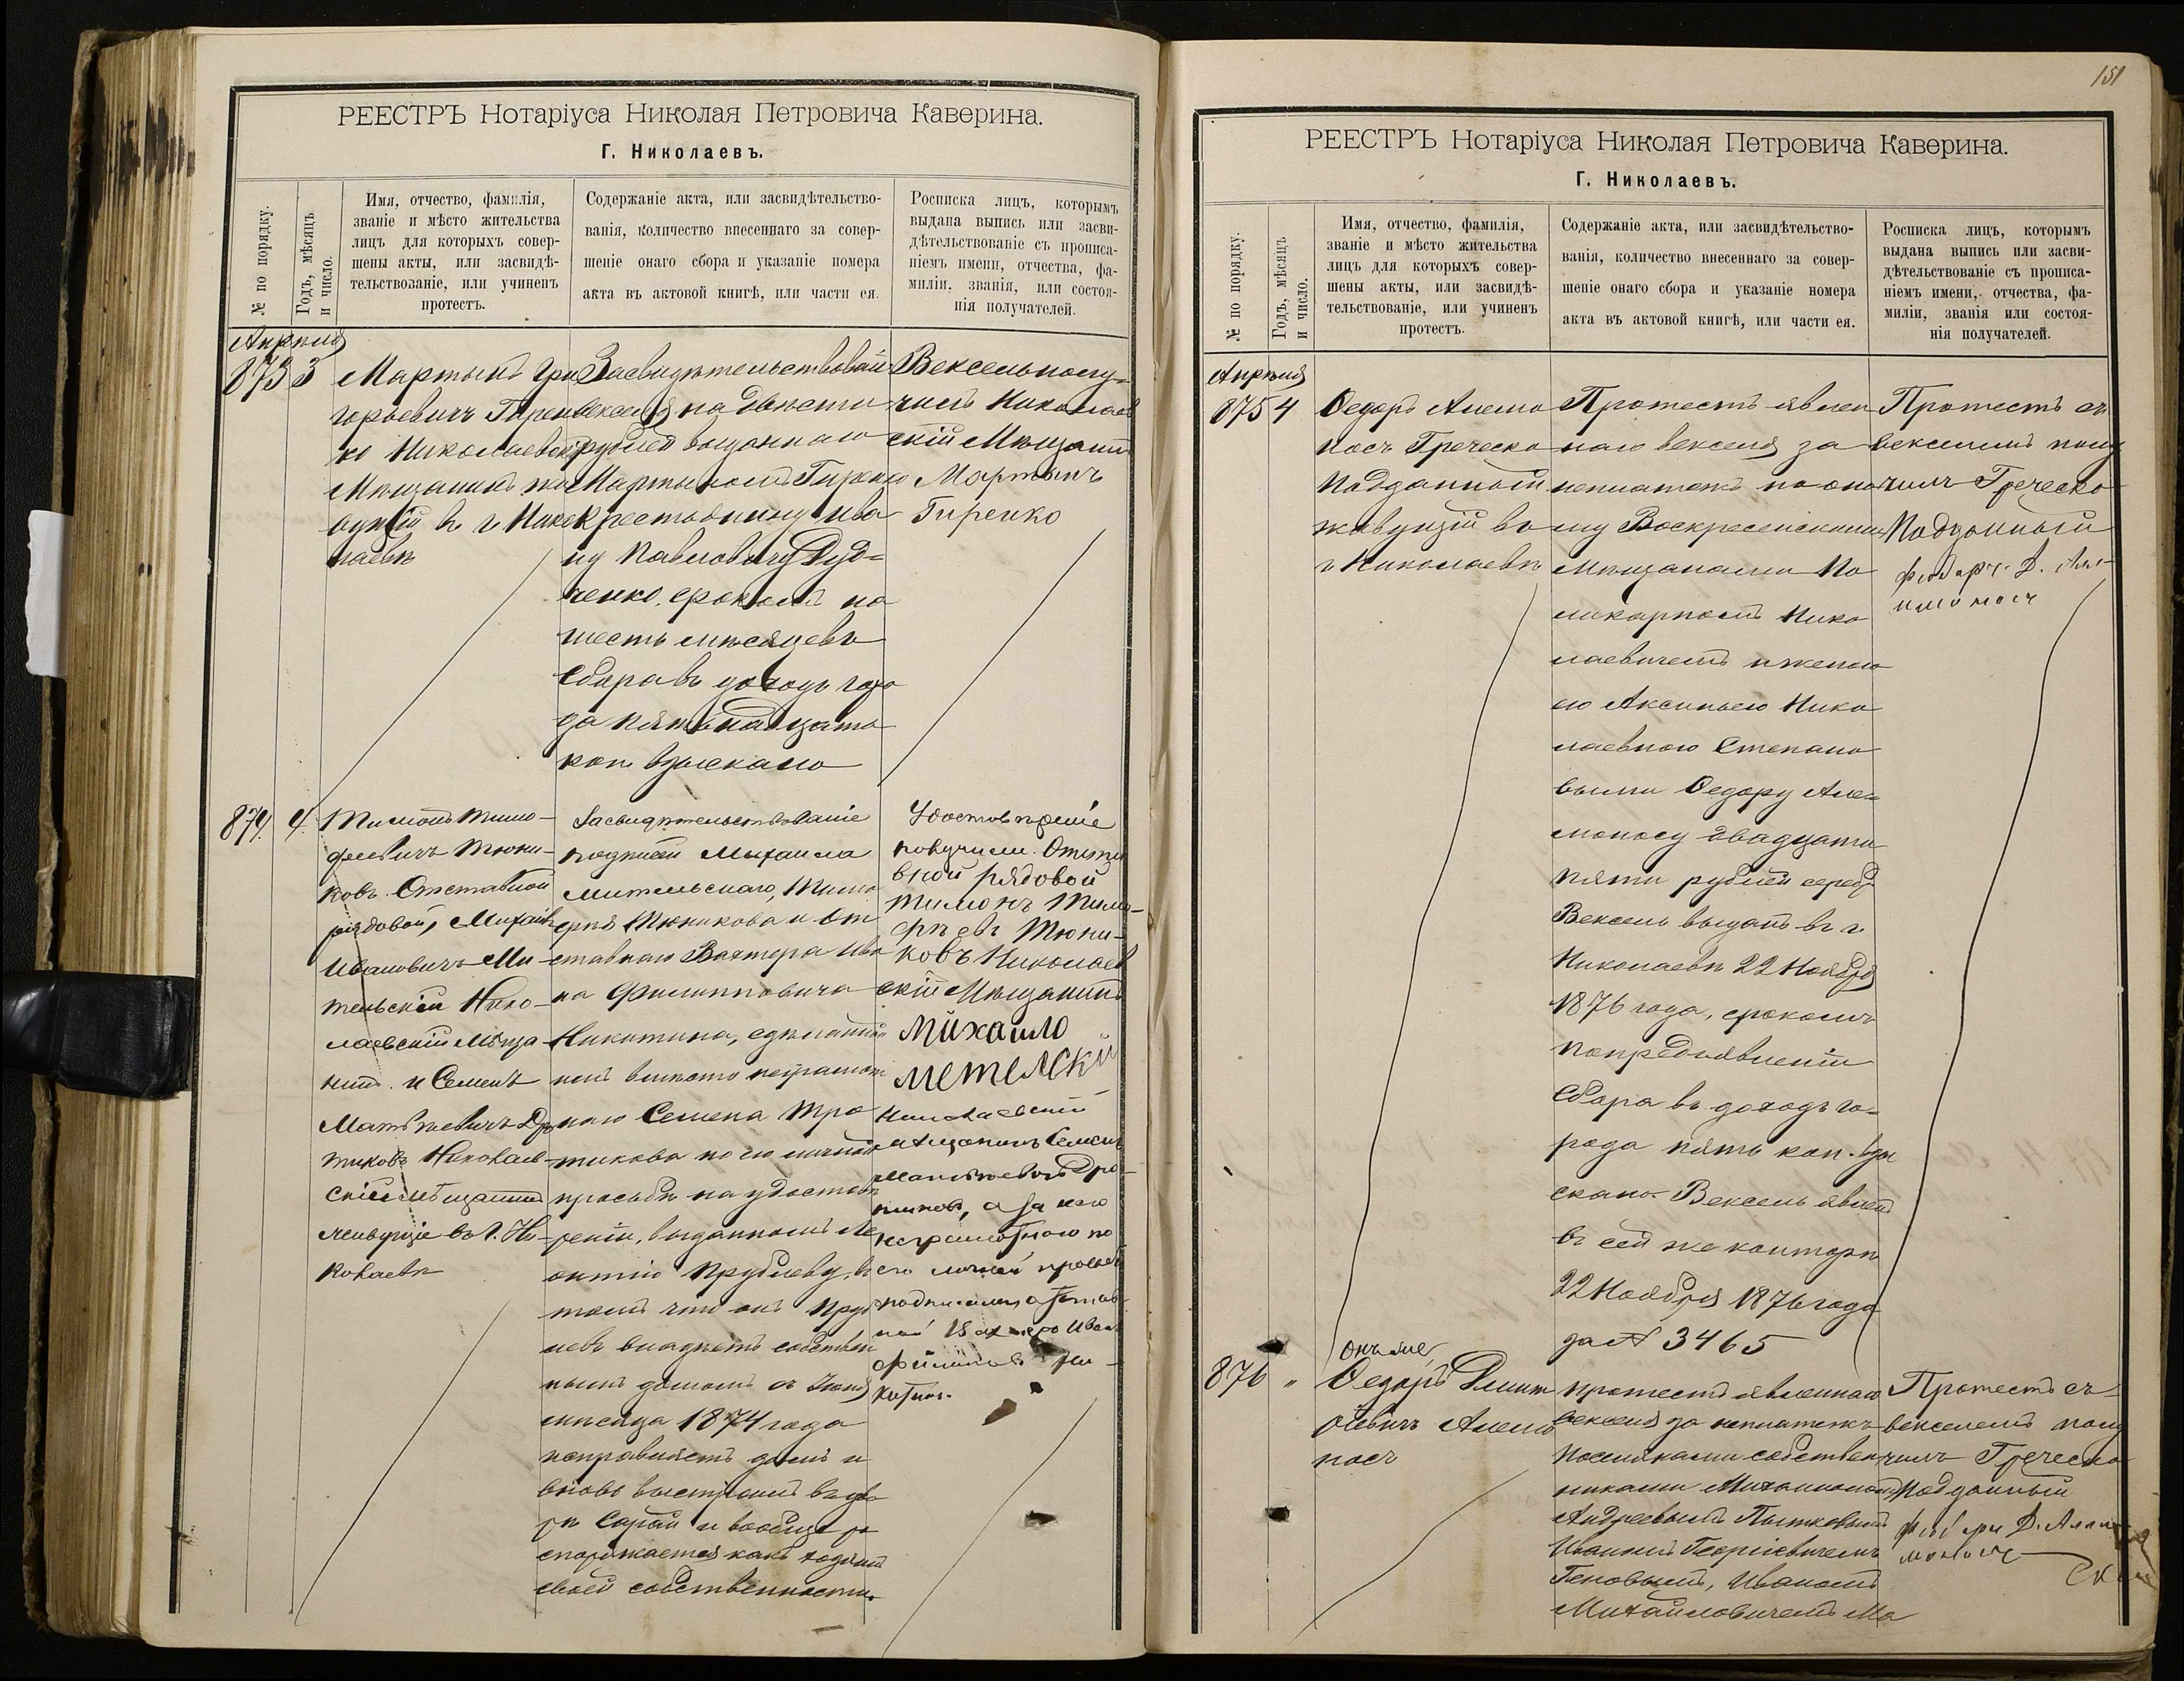 РЕЕСТРЪ Нотаріуса Николая Петровича Каверина.
Г. Николаевъ.
№ по порядку.
Годъ, мѣсяцъ
и число.
Имя, отчество, фамилія,
званіе и мѣсто жительства
лицъ для которыхъ совер-
шены акты, или засвидѣ-
тельствованіе, или учиненъ
протестъ.
Содержаніе акта, или засвидѣтельство-
ванія, количество внесеннаго за совер-
шеніе онаго сбора и указаніе номера
акта въ актовой книгѣ, или части ея.
Росписка лицъ, которымъ
выдана выпись или засви-
дѣтельствованіе съ прописа-
ніемъ имени, отчества, фа-
миліи, званія, или состоя-
нія получателей.
Апрѣля
873 3
Мартынъ Гри
горьевичъ Гирен
ко Николаевскій
Мѣщанинъ жи
вущій въ г. Нико
лаевѣ
Засвидѣтельствованіе
векселя на двѣсти
рублей выданнаго
Мартыномъ Гиренко
Крестьянину Ива
ну Павловичу Дуд=
ченко, срокомъ на
шесть мѣсяцевъ
Сбора въ доходъ горо
да пятьнадцать
коп. взыскано
Вексель полу=
чилъ Николаев
скій Мѣщанинъ
Мартынъ
Гиренко
874. 4.
Тимонъ Тимо-
феевичъ Тюни-
ковъ Отставной
рядовой, Михаилъ
Ивановичъ Ми-
тельскій Нико-
лаевскій Мѣща-
нинъ и Семенъ
Матвѣевичъ Дро
тиковъ Николаев-
скій Мѣщанинъ
живущіе въ г. Ни-
колаевѣ
Засвидѣтельствованіе
подписей Михаила
Мительскаго, Тимо
фея Тюникова и От
ставнаго Вахтера Ива
на Филипповича
Никитина, сдѣланной
имъ вмѣсто неграмот
наго Семена Дро
тикова по его личной
просьбѣ на удостовѣ
реніи, выданномъ Ле
онтію Прудиеву, въ
томъ что онъ Пруд
иевъ владѣетъ собствен
нымъ домомъ съ Іюня
мѣсяца 1874 года
поправляетъ домъ и
вновь выстроилъ въ дво
рѣ Сарай и вообще ра
споряжается какъ хозяинъ
своей собственности.
Удостовѣреніе
получили. Отста
вной рядовой
Тимонъ Тимо-
фѣевъ Тюни-
ковъ Николаев
скій Мѣщанинъ
Михаило
Метелски
Николаевскій
мѣщанинъ Семенъ
Матвѣевичъ Дро-
тиковъ, а за него
неграмотнаго по
его личной просьбѣ
подписался отстав
ной Вахтеръ Иванъ
Филиповъ Ни-
китинъ.
151
РЕЕСТРЪ Нотаріуса Николая Петровича Каверина.
Г. Николаевъ.
№ по порядку.
Годъ, мѣсяцъ
и число.
Имя, отчество, фамилія,
званіе и мѣсто жительства
лицъ для которыхъ совер-
шены акты, или засвидѣ-
тельствованіе, или учиненъ
протестъ.
Содержаніе акта, или засвидѣтельство-
ванія, количество внесеннаго за совер-
шеніе онаго сбора и указаніе номера
акта въ актовой книгѣ, или части ея.
Росписка лицъ, которымъ
выдана выпись или засви-
дѣтельствованіе съ прописа-
ніемъ имени, отчества, фа-
миліи, званія или состоя-
нія получателей.
Апрѣля
875 4
Ѳедоръ Алемо
носъ Греческо
Подданный
живущій въ
г. Николаевѣ
Протестъ явлен
наго векселя за
неплатежъ по оно
му Воскресенскими
Мѣщанами По
ликарпомъ Нико
лаевичемъ и женою
его Аксиньею Нико
лаевною Степано
выми Ѳедору Але=
моносу двадцати
пяти рублей сереб.
Вексель выданъ въ г.
Николаевѣ 22 Ноября
1876 года, срокомъ
по предъявленіи
Сбора въ доходъ го-
рода пять коп. взы
скано. Вексель явленъ
въ сей же конторѣ
22 Ноября 1876 года
за № 3465
Протестъ съ
векселемъ полу
чилъ Греческо
Подданный
876 "
онъ же
Ѳедоръ Дмит
ріевичъ Алемо
носъ
протестъ явленнаго
векселя за неплатежъ
поселянами собствен
никами Михаиломъ
Андреевымъ Пытковымъ
Иваномъ Георгіевичемъ
Геновымъ, Иваномъ
Михайловичемъ Ма
Протестъ съ
векселемъ полу
чилъ Греческо
Подданный